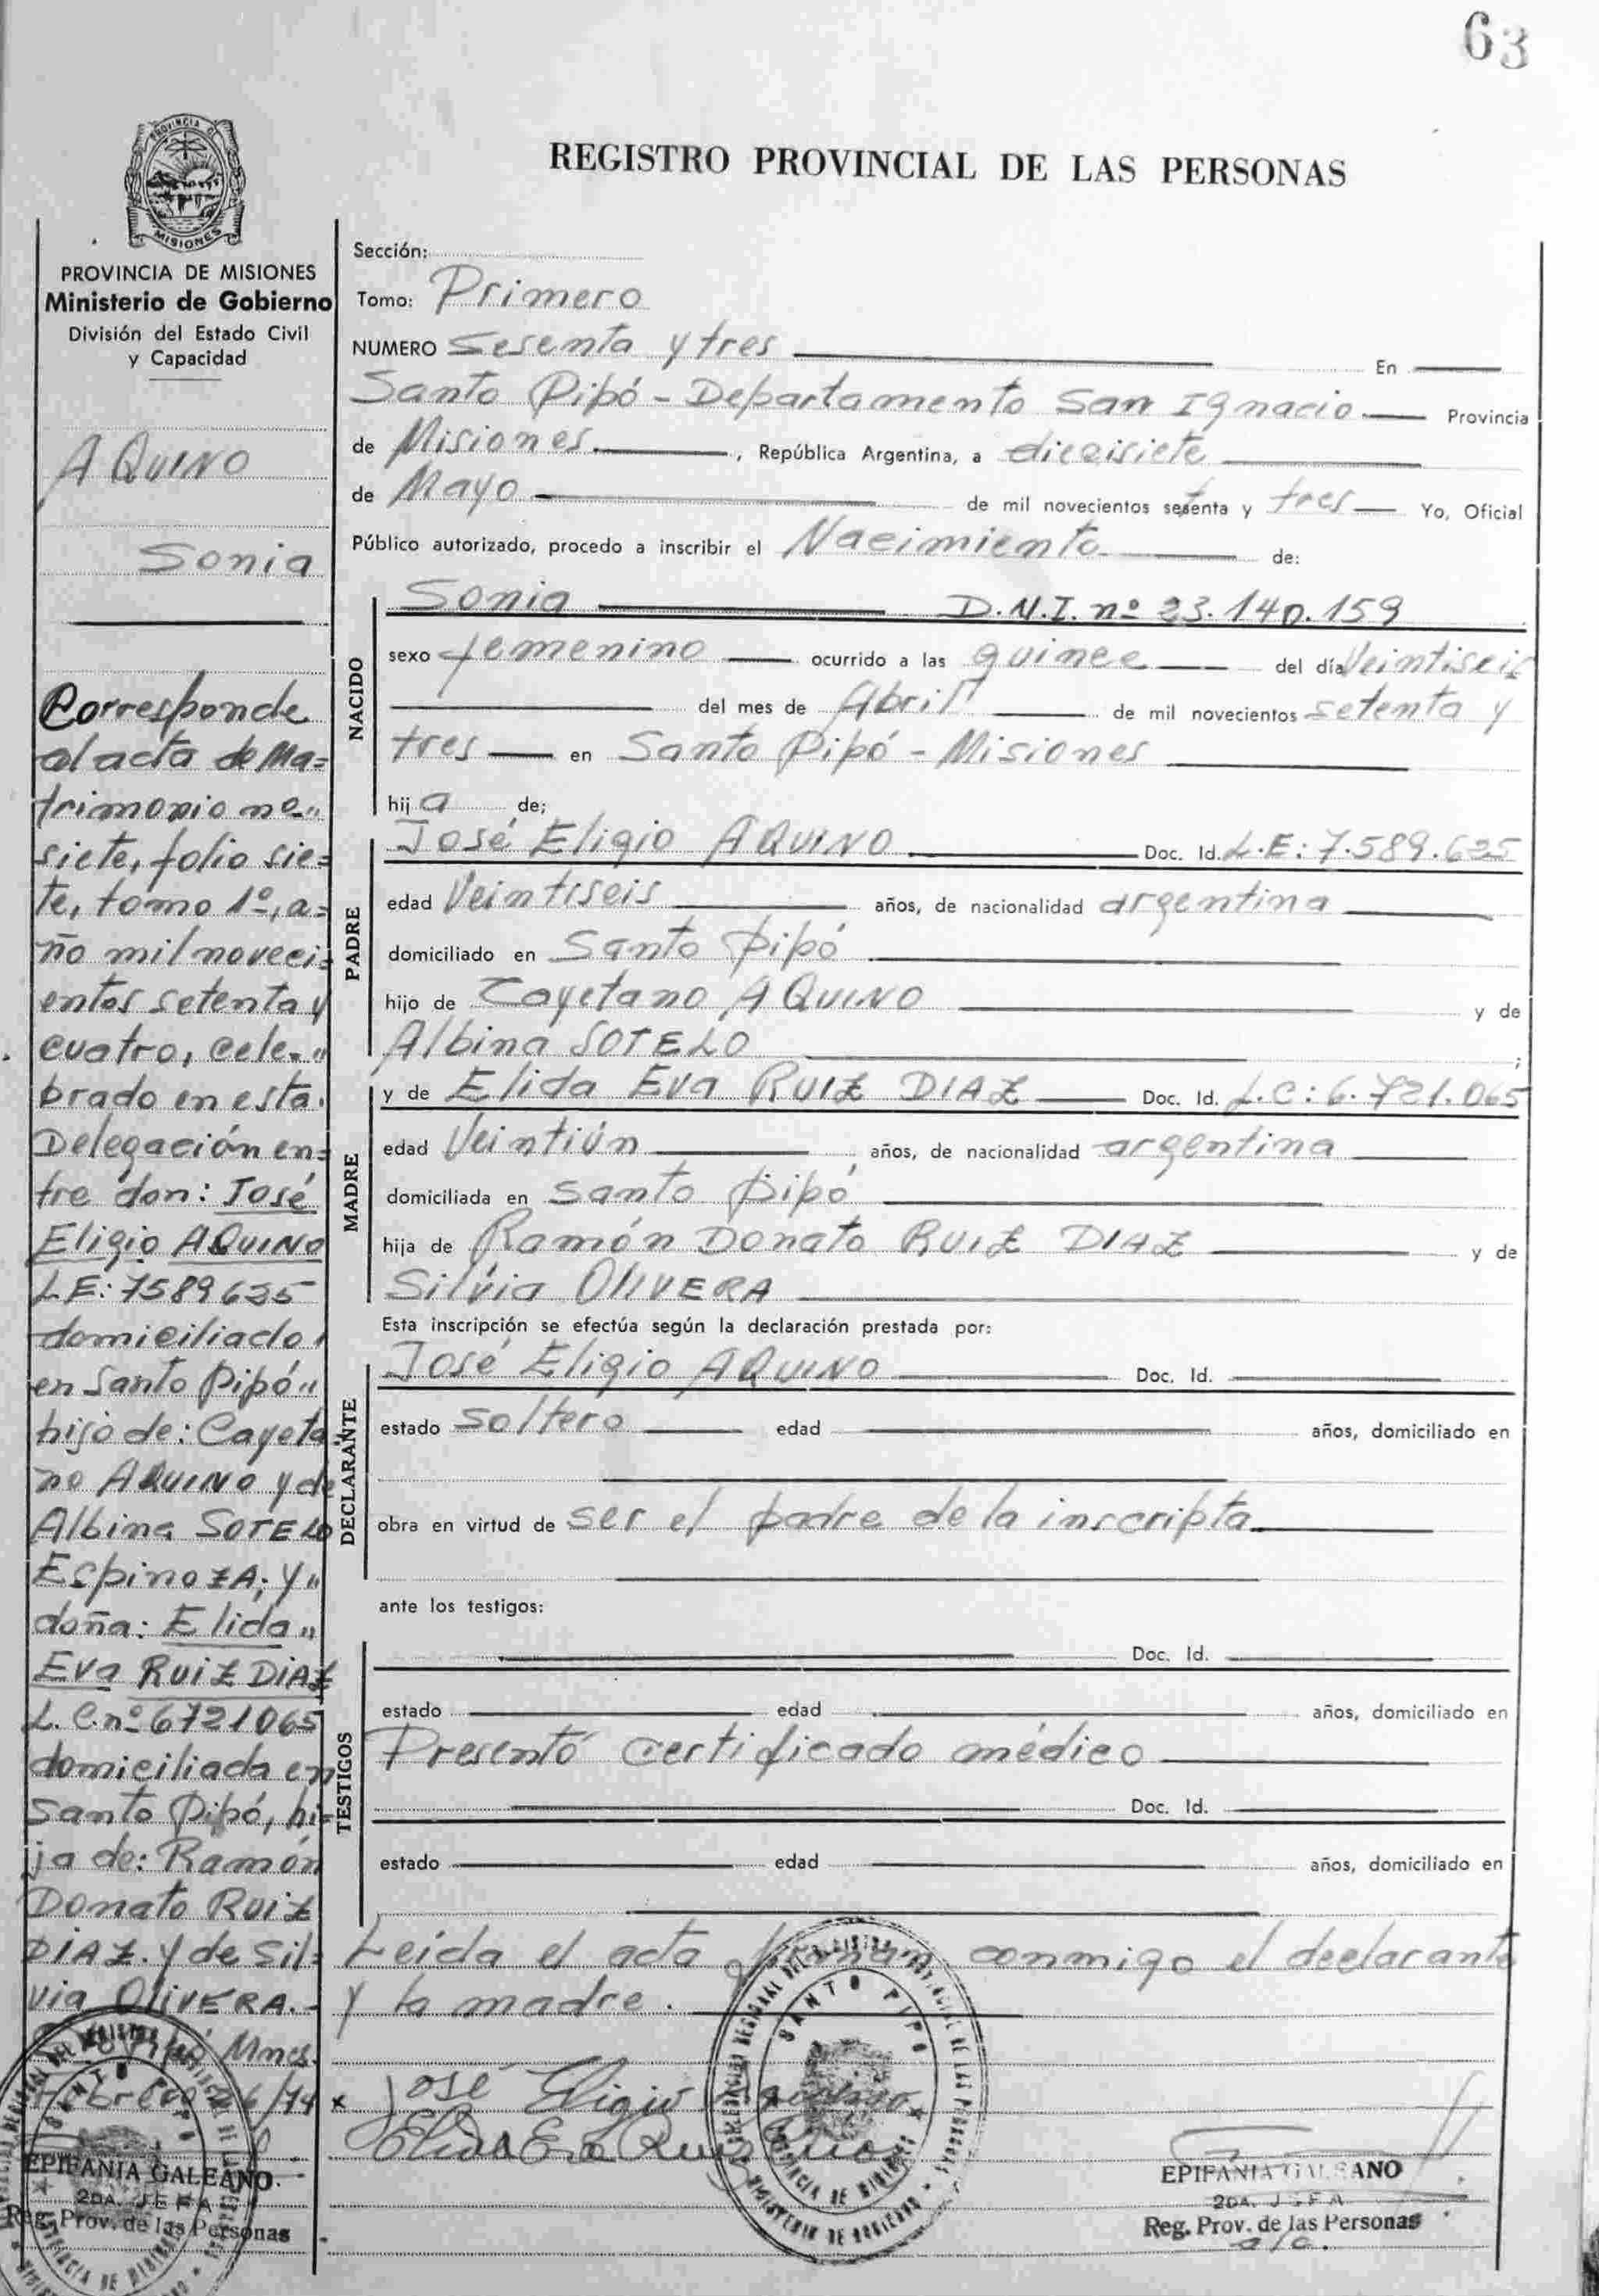 63
PROVINCIA DE
MISIONES
REGISTRO PROVINCIAL DE LAS PERSONAS
PROVINCIA DE MISIONES
Ministerio de Gobierno
División del Estado Civil
y Capacidad
AQUINO
Sonia
Corresponde
al acta de Ma=
trimonio no"
siete, folio sie=
te, tomo 1º, a=
ño mil noveci=
entos setenta y
cuatro, cele="
brado en esta
Delegación en=
tre don: José
Eligio AQUINO
L.E: 7589635
domiciliado
en Santo Pipó"
hijo de: Cayeta=
no AQUINO y de
Albina SOTELO
EspinoZA; y"
doña: Elida"
Eva RUIZ DIAZ
L.C.nº 6721065
domiciliada en
Santo Pipó, hi=
ja de: Ramón
Donato RUIZ
DIAZ. y de Sil=
via OLIVERA.-
Pipó Mnes.
Febrero 26/74
EPIFANIA GALEANO
2DA. JEFA
Reg. Prov. de las Personas
Sección:
Tomo: Primero
NUMERO Sesenta y tres En
Santo Pipó - Departamento San Ignacio Provincia
de Misiones, República Argentina, a diecisiete
de Mayo de mil novecientos setenta y tres Yo, Oficial
Público autorizado, procedo a inscribir el Nacimiento de:
NACIDO
Sonia D.N.I. nº 23.140.159
sexo femenino ocurrido a las quince del día Veintiseis
del mes de Abril de mil novecientos setenta y
tres en Santo Pipó - Misiones
hija de;
PADRE
José Eligio AQUINO Doc. Id. L.E: 7.589.635
edad Veintiseis años, de nacionalidad argentina
domiciliado en Santo Pipó
hijo de Cayetano AQUINO y de
Albina SOTELO ;
MADRE
y de Elida Eva RUIZ DIAZ Doc. Id. L.C: 6.721.065
edad Veintiún años, de nacionalidad argentina
domiciliada en Santo Pipó
hija de Ramón Donato RUIZ DIAZ y de
Silvia OLIVERA
Esta inscripción se efectúa según la declaración prestada por:
DECLARANTE
José Eligio AQUINO Doc. Id.
estado soltero edad años, domiciliado en
obra en virtud de ser el padre de la inscripta.
ante los testigos:
TESTIGOS
Doc. Id.
estado edad años, domiciliado en
Presentó certificado médico
Doc. Id.
estado edad años, domiciliado en
Leida el acta conmigo el declarante
y la madre.
SANTO PIPO
PROVINCIA DE MISIONES
MINISTERIO DE GOBIERNO
x José Eligio Aquino
Elida Eva Ruiz Diaz
EPIFANIA GALEANO
2DA. JEFA
Reg. Prov. de las Personas
a/c.